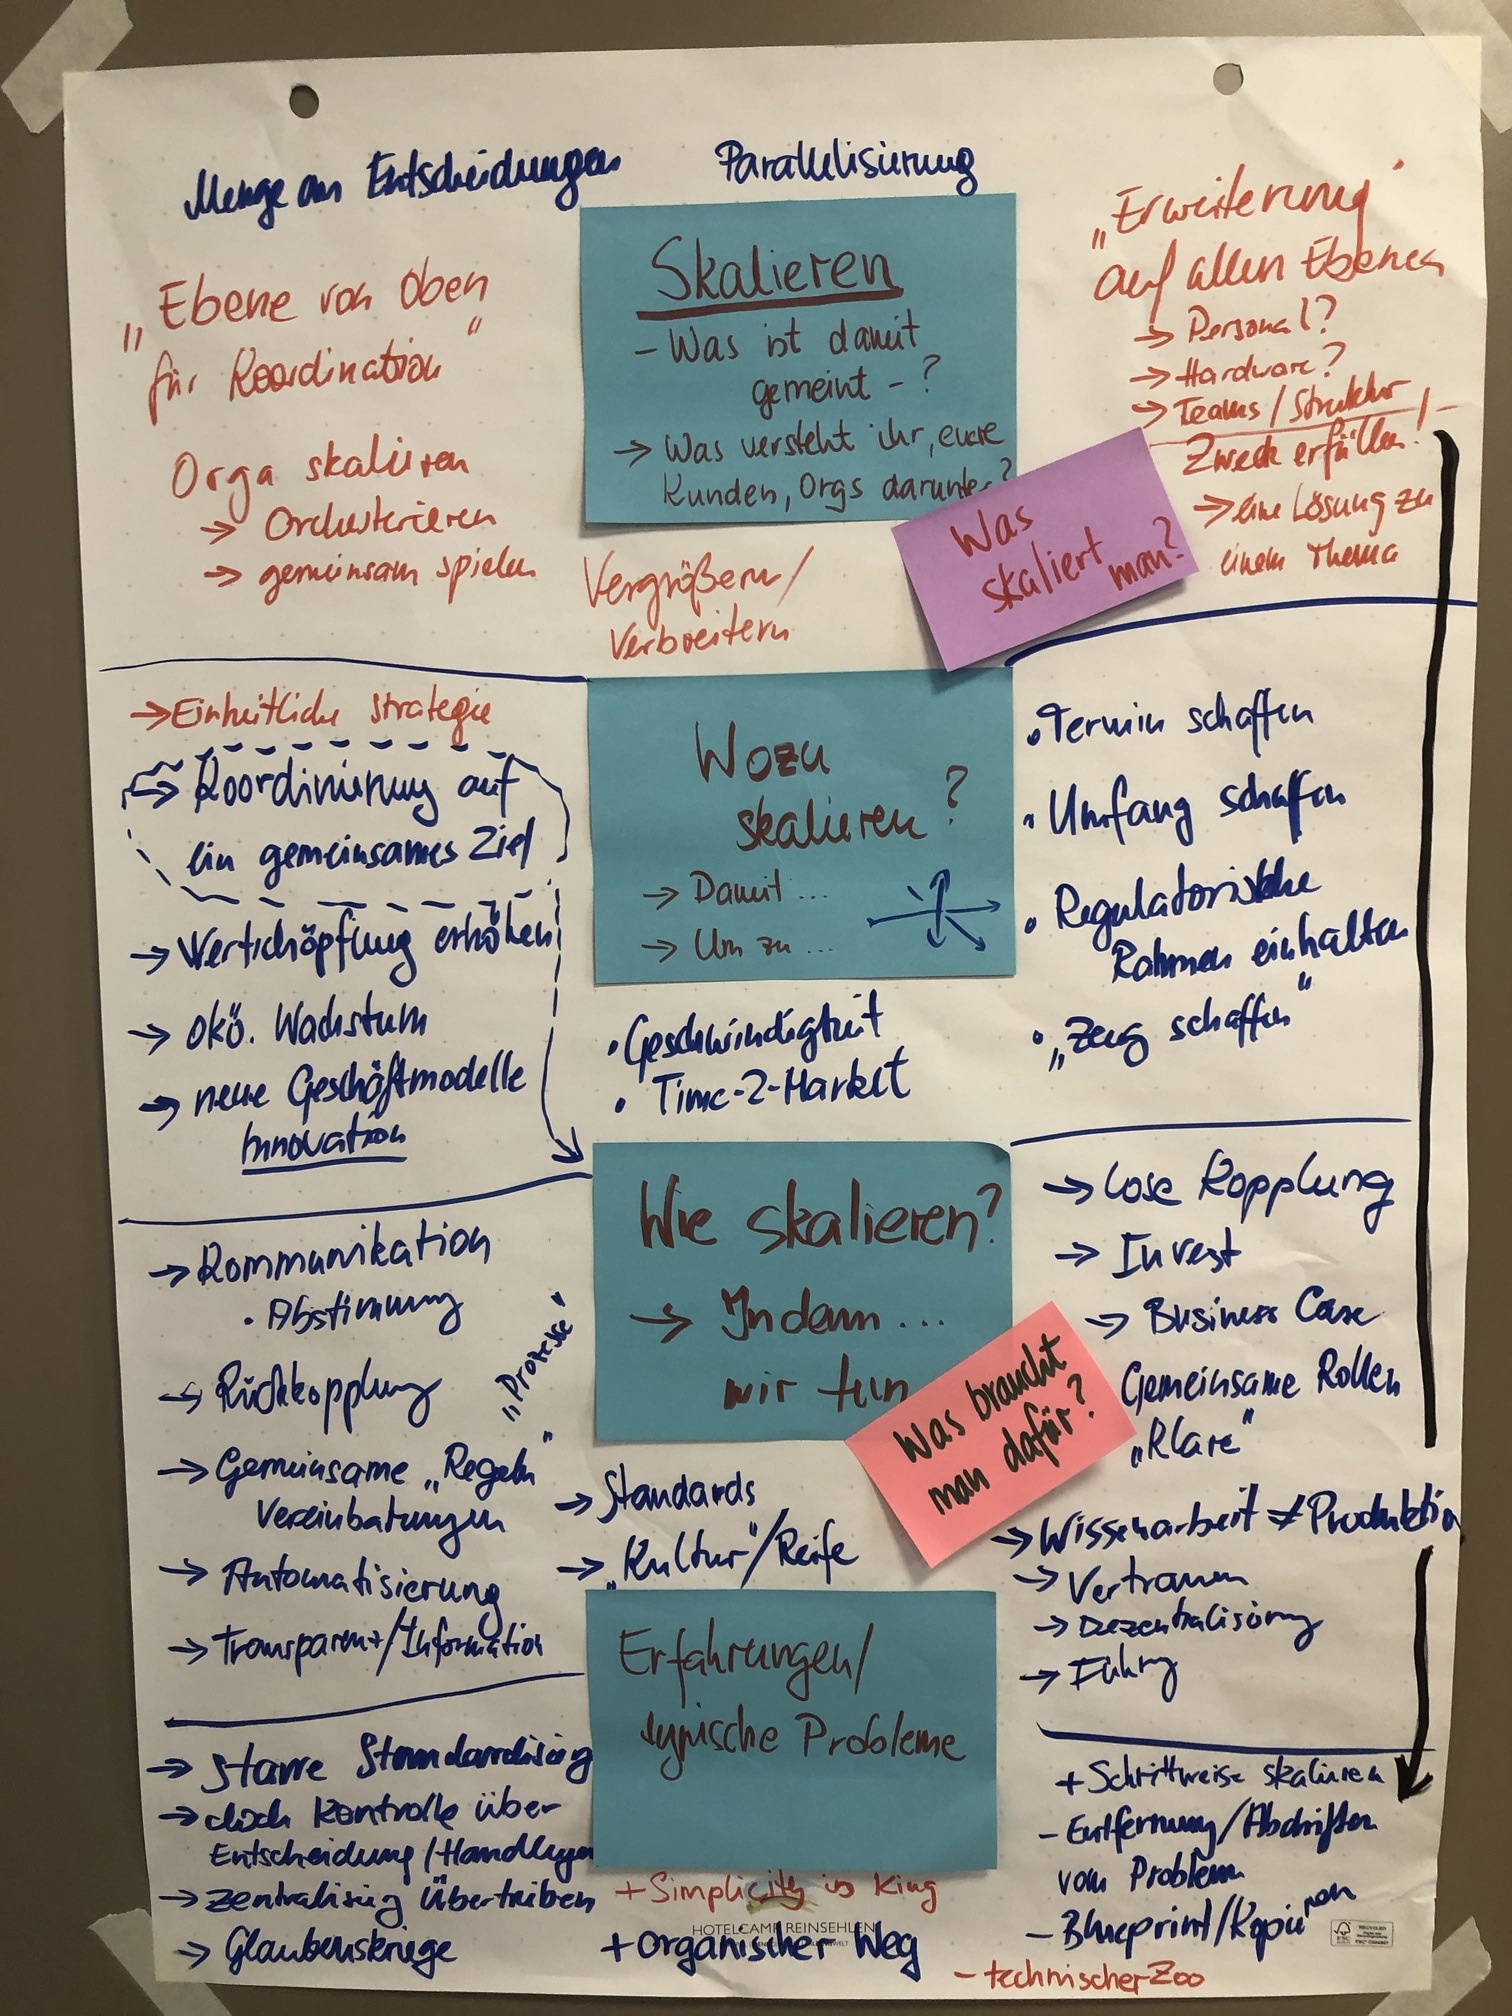 Menge an Entscheidungen
Parallelisierung
„Ebene von oben
für Koordination"
Orga skalieren
→ Orchestrieren
→ gemeinsam spielen
Skalieren
- Was ist damit
gemeint - ?
→ Was versteht ihr, eure
Kunden, Orgs darunter?
Vergrößern/
Verbreitern
Was
skaliert man?
„Erweiterung"
auf allen Ebenen
→ Personal?
→ Hardware?
→ Teams / Struktur
Zweck erfüllen!
→ eine Lösung zu
einem Thema
→ Einheitliche Strategie
→ Koordinierung auf
ein gemeinsames Ziel
→ Wertschöpfung erhöhen
→ okö. Wachstum
→ neue Geschäftmodelle
Innovation
Wozu
skalieren?
→ Damit ...
→ Um zu ...
• Geschwindigkeit
• Time-2-Market
• Termin schaffen
• Umfang schaffen
• Regulatorische
Rahmen einhalten
• „Zeug schaffen"
→ Kommunikation
• Abstimmung
→ Rückkopplung
„Prozesse"
→ Gemeinsame „Regeln"
Vereinbarungen
→ Automatisierung
→ Transparent/Information
Wie skalieren?
→ Indem ...
wir tun
Was braucht
man dafür?
→ Standards
→ „Kultur"/Reife
→ Lose Kopplung
→ Invest
→ Business Case
Gemeinsame Rollen
„Klare"
→ Wissenarbeit ≠ Produktion
→ Vertrauen
→ Dezentralisierung
→ Führung
→ starre Standardisierung
→ doch Kontrolle über
Entscheidung/Handlungen
→ Zentralisierung übertrieben
→ Glaubenskriege
Erfahrungen/
typische Probleme
+ Simplicity is King
HOTELCAMP REINSEHLEN
+ organischer Weg
+ Schrittweise skalieren
- Entfernung/Abdriften
vom Problem
- Blueprint/Kopieren
- technischer Zoo